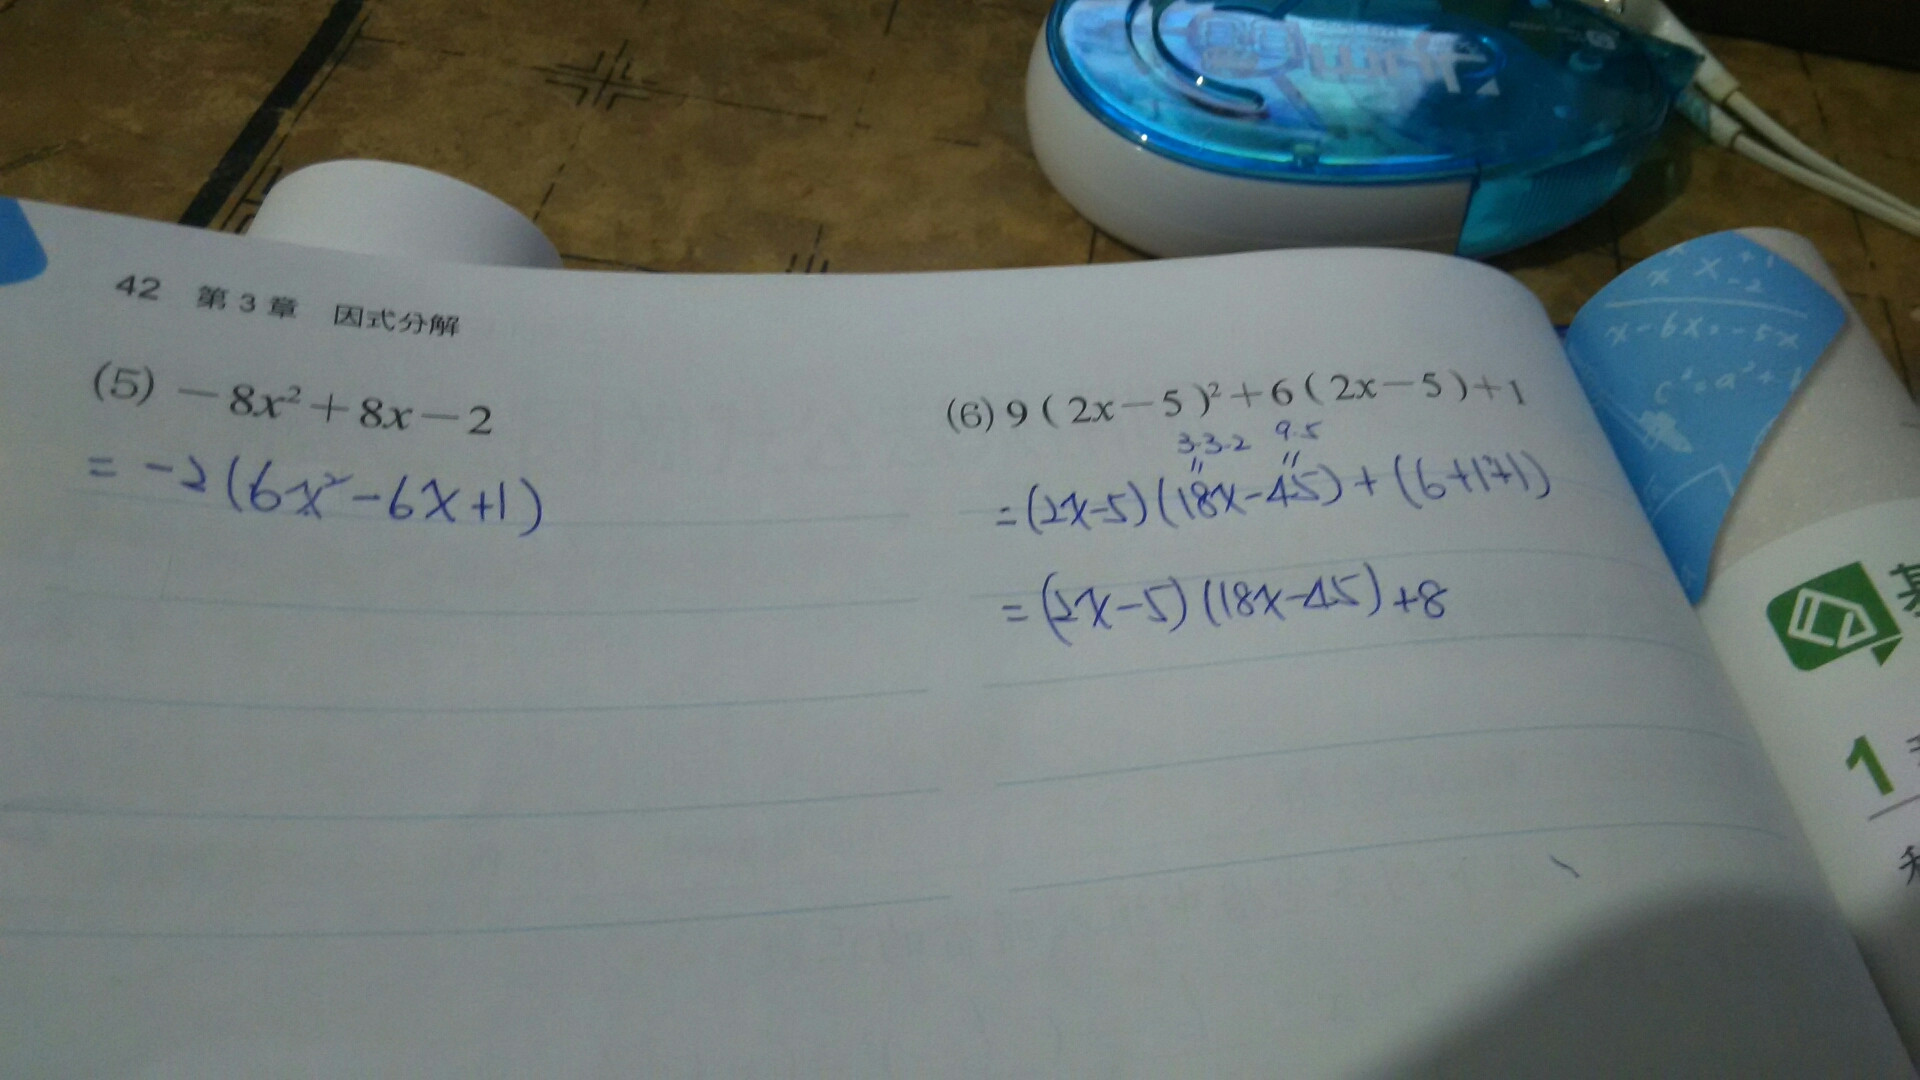 42 第3章 因式分解
(5) －8x²＋8x－2
= -2(6x²-6x+1)
(6) 9(2x－5)²＋6(2x－5)＋1
3·3·2 9·5
= (2x-5)(18x-45)+(6+1+1)
= (2x-5)(18x-45)+8
x-6x=-5x
1